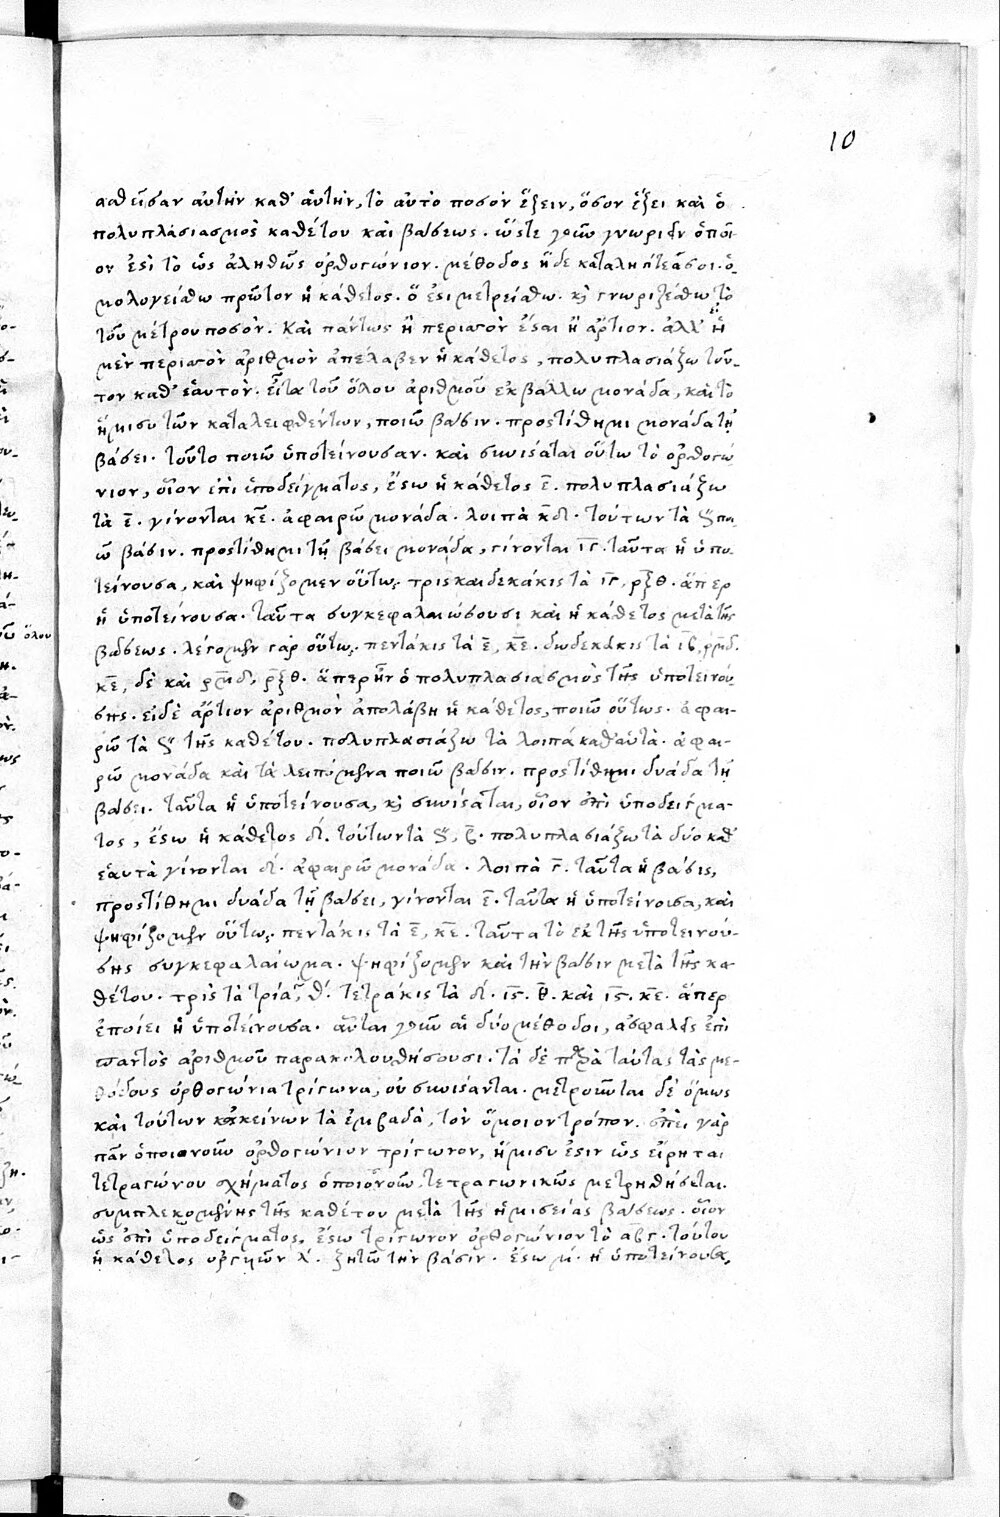 10
σαθεῖσαν αὐτὴν καθ' αὑτὴν, τὸ αὐτὸ ποσὸν ἕξειν, ὅσον ἕξει καὶ ὁ
πολυπλασιασμὸς καθέτου καὶ βάσεως. ὥστε γοῦν γνωρίζειν ὁποῖ-
ον ἐστὶ τὸ ὡς ἀληθῶς ὀρθογώνιον. μέθοδος ἥδε καταληπτέα σοι. ὁ-
μολογείσθω πρῶτον ἡ κάθετος. ὅ ἐστι μετρείσθω. κ γνωριζέσθω τὸ
τοῦ μέτρου ποσόν. καὶ πάντως ἢ περισσὸν ἔσται ἢ ἄρτιον. ἀλλ' εἰ
μὲν περισσὸν ἀριθμὸν ἀπέλαβεν ἡ κάθετος, πολυπλασιάζω τοῦ-
τον καθ' ἑαυτόν. εἶτα τοῦ ὅλου ἀριθμοῦ ἐκβάλλω μονάδα, καὶ τὸ
ἥμισυ τῶν καταλειφθέντων, ποιῶ βάσιν. προστίθημι μονάδα τῇ
βάσει. τοῦτο ποιῶ ὑποτείνουσαν. καὶ συνίσταται οὕτω τὸ ὀρθογώ
νιον, οἷον ἐπὶ ὑποδείγματος, ἔστω ἡ κάθετος ε. πολυπλασιάζω
τὰ ε. γίνονται κε. ἀφαιρῶ μονάδα. λοιπὰ κδ. τούτων τὰ ϛ ποι
ῶ βάσιν. προστίθημι τῇ βάσει μονάδα, γίνονται ιγ. ταῦτα ἡ ὑπο
τείνουσα, καὶ ψηφίζομεν οὕτω, τρισκαιδεκάκις τὰ ιγ, ρξθ. ἅπερ
ἡ ὑποτείνουσα. ταῦτα συγκεφαλαιώσουσι καὶ ἡ κάθετος μετὰ τῆς
βάσεως. λέγομεν γὰρ οὕτω, πεντάκις τὰ ε, κε. δωδεκάκις τὰ ιβ, ρμδ.
κε, δὲ καὶ ρμδ, ρξθ. ἅπερ ἦν ὁ πολυπλασιασμὸς τῆς ὑποτεινού-
σης. εἰ δὲ ἄρτιον ἀριθμὸν ἀπολάβη ἡ κάθετος, ποιῶ οὕτως. ἀφαι-
ρῶ τὰ ϛ τῆς καθέτου. πολυπλασιάζω τὰ λοιπὰ καθ' αὑτά. ἀφαι-
ρῶ μονάδα καὶ τὰ λειπόμενα ποιῶ βάσιν. προστίθημι δυάδα τῇ
βάσει. ταῦτα ἡ ὑποτείνουσα, κ συνίσταται, οἷον ἐπὶ ὑποδείγμα-
τος, ἔστω ἡ κάθετος δ. τούτων τὰ ϛ, β. πολυπλασιάζω τὰ δύο καθ'
ἑαυτὰ γίνονται δ. ἀφαιρῶ μονάδα. λοιπὰ γ. ταῦτα ἡ βάσις,
προστίθημι δυάδα τῇ βάσει, γίνονται ε. ταῦτα ἡ ὑποτείνουσα, καὶ
ψηφίζομεν οὕτω, πεντάκις τὰ ε, κε. ταῦτα τὸ ἐκ τῆς ὑποτεινού-
σης συγκεφαλαίωμα. ψηφίζομεν καὶ τὴν βάσιν μετὰ τῆς κα-
θέτου. τρὶς τὰ τρία, θ. τετράκις τὰ δ. ιϛ. θ. καὶ ιϛ. κε. ἅπερ
ἐποίει ἡ ὑποτείνουσα. αὗται γοῦν αἱ δύο μέθοδοι, ἀσφαλεῖς ἐπὶ
παντὸς ἀριθμοῦ παρακολουθήσουσι. τὰ δὲ παρὰ ταύτας τὰς με-
θόδους ὀρθογώνια τρίγωνα, οὐ συνίστανται. μετροῦνται δὲ ὅμως
καὶ τούτων κἀκείνων τὰ ἐμβαδὰ, τὸν ὅμοιον τρόπον. ἐπεὶ γὰρ
πᾶν ὁποιονοῦν ὀρθογώνιον τρίγωνον, ἥμισυ ἐστιν ὡς εἴρηται
τετραγώνου σχήματος ὁποιονοῦν, τετραγωνικῶς μετρηθήσεται.
συμπλεκομένης τῆς καθέτου μετὰ τῆς ἡμισείας βάσεως. οἷον
ὡς ἐπὶ ὑποδείγματος, ἔστω τρίγωνον ὀρθογώνιον τὸ αβγ. τούτου
ἡ κάθετος ὀργυιῶν λ. ζητῶ τὴν βάσιν. ἔστω μ. ἡ ὑποτείνουσα,